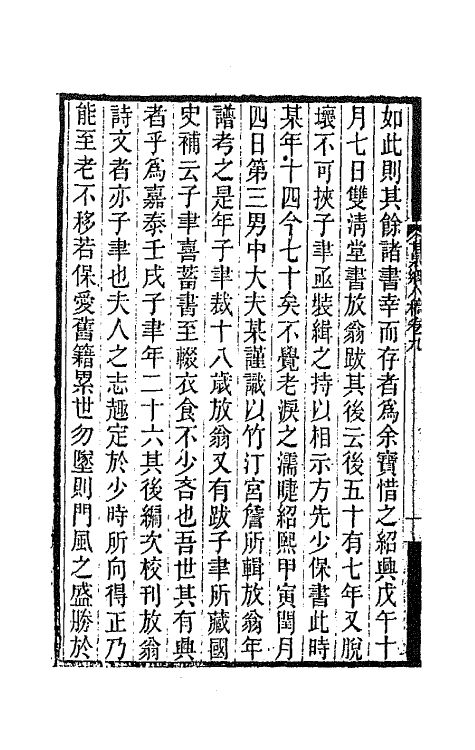 如此則其餘諸書幸而存者為余寶惜之紹興戊午十
月七日雙清堂書放翁跋其後云後五十有七年又脫
壞不可挾子聿亟裝緝之持以相示方先少保書此時
某年十四今七十矣不覺老淚之濡睫紹熙甲寅閏月
四日第三男中大夫某謹識以竹汀宮詹所輯放翁年
譜考之是年子聿裁十八歲放翁又有跋子聿所藏國
史補云子聿喜蓄書至輟衣食不少吝也吾世其有興
者乎為嘉泰壬戌子聿年二十六其後編次校刊放翁
詩文者亦子聿也夫人之志趣定於少時所向得正乃
能至老不移若保愛舊籍累世勿墜則門風之盛勝於
卷九